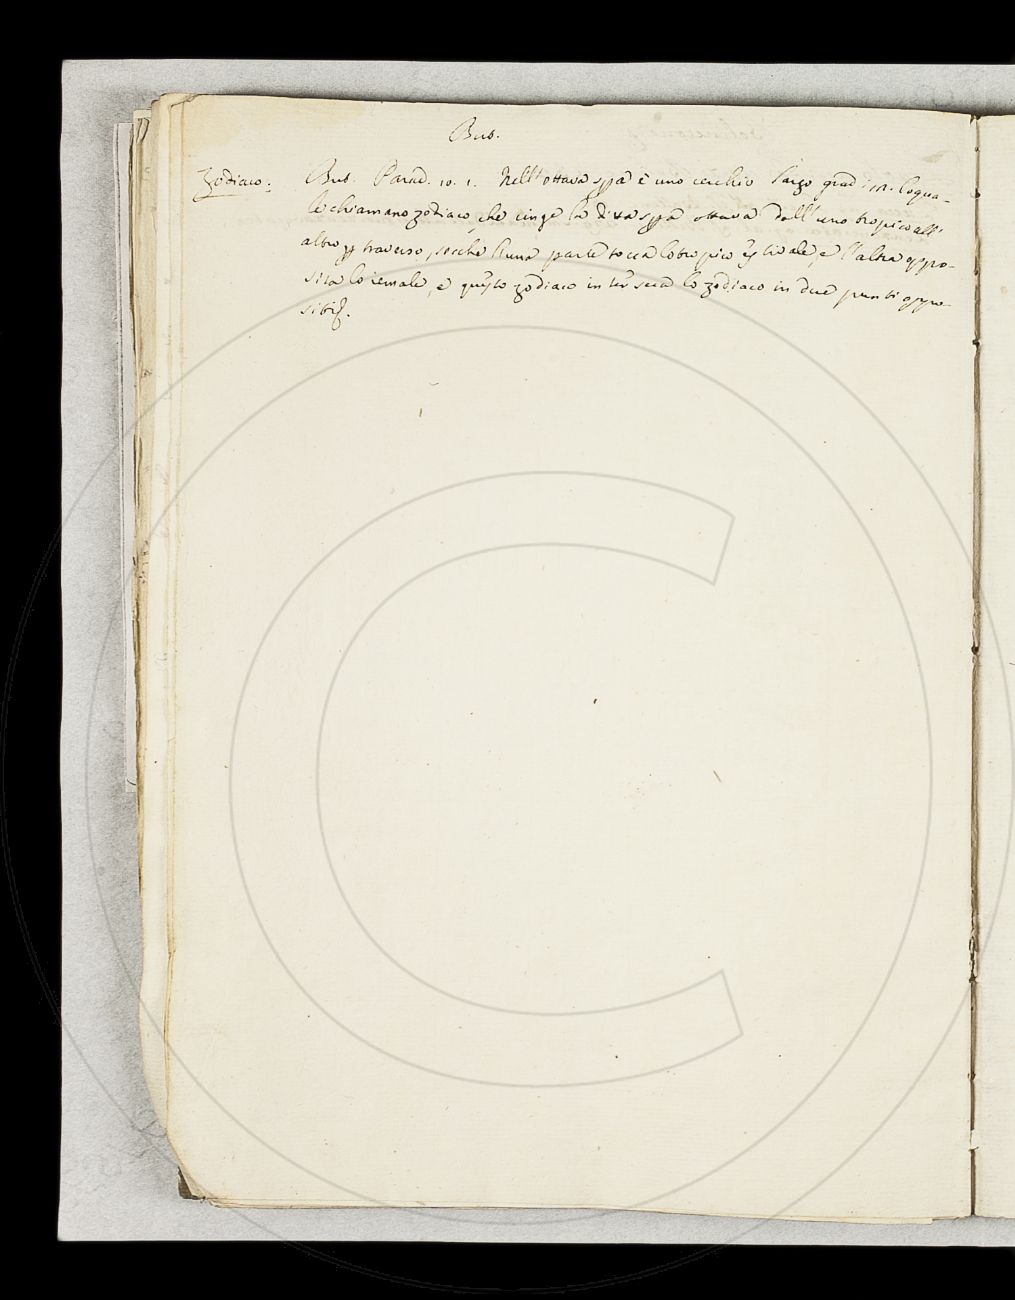 But.
Zodiaco. But. Parad. 10. 1. Nell'ottava spa è uno cerchio largo gradi 12. loqua-
le chiamano zodiaco, che cinge la ditta spa ottava dall'uno tropico all'
altro p traverso, sicche l'una parte tocca lo tropico estivale, e l'altra oppo-
sita lo iemale, e questo zodiaco interseca lo zodiaco in due punti oppo-
siti